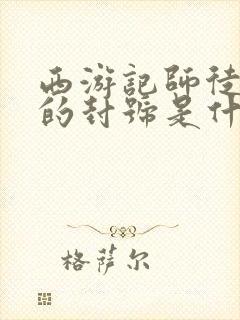 西游記師徒
的封號是什
格萨尔